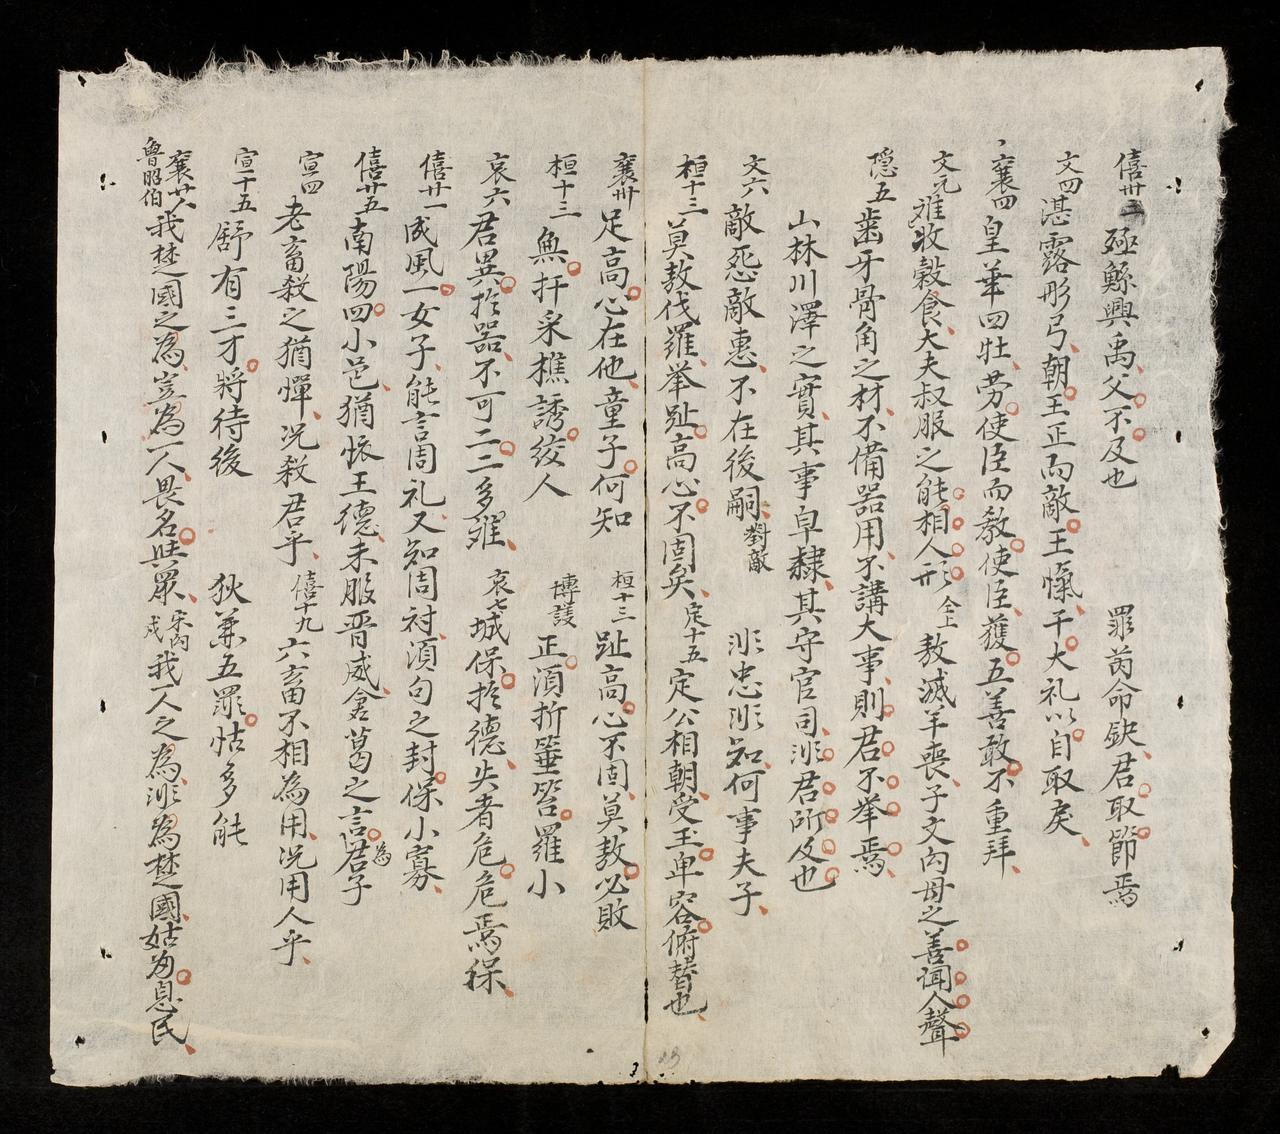 僖卅三 殛鯀興禹父不及也 罪芮命缺君取節焉
文四 湛露彤弓朝王正而敵王愾干大礼以自取戾
襄四 皇華四牡劳使臣而教使臣獲五善敢不重拜
文元 难收穀食大夫叔服之能相人形 仝上 敖滅羊喪子文向母之善闻人聲
隠五 歯牙骨角之材不備器用不講大事則君不举焉
山林川澤之實其事皁隸其守官司非君所及也
文六 敵怨敵惠不在後嗣 對敵 非忠非知何事夫子
桓十三 莫敖伐羅举趾高心不固矣 定十五 定公相朝受玉卑容俯替也
襄卅 足高心在他童子何知 桓十三 趾高心不固莫敖必敗
桓十三 無扞采樵誘绞人 博議 正須折箠笞羅小
哀六 君異於器不可二二多难 哀七 城保於德失者危危焉保
僖廿一 成風一女子能言周礼又知周祔須句之封保小寡
僖廿五 南陽四小邑猶怀王德未服晋威倉葛之言為君子
宣四 老畜殺之猶憚况殺君乎 僖十九 六畜不相為用况用人乎
宣十五 舒有三才將待後 狄兼五罪怙多能
襄廿八 魯昭伯 我楚國之為豈為一人畏名與眾 宋向戌 我一人之為非為楚國姑为息民